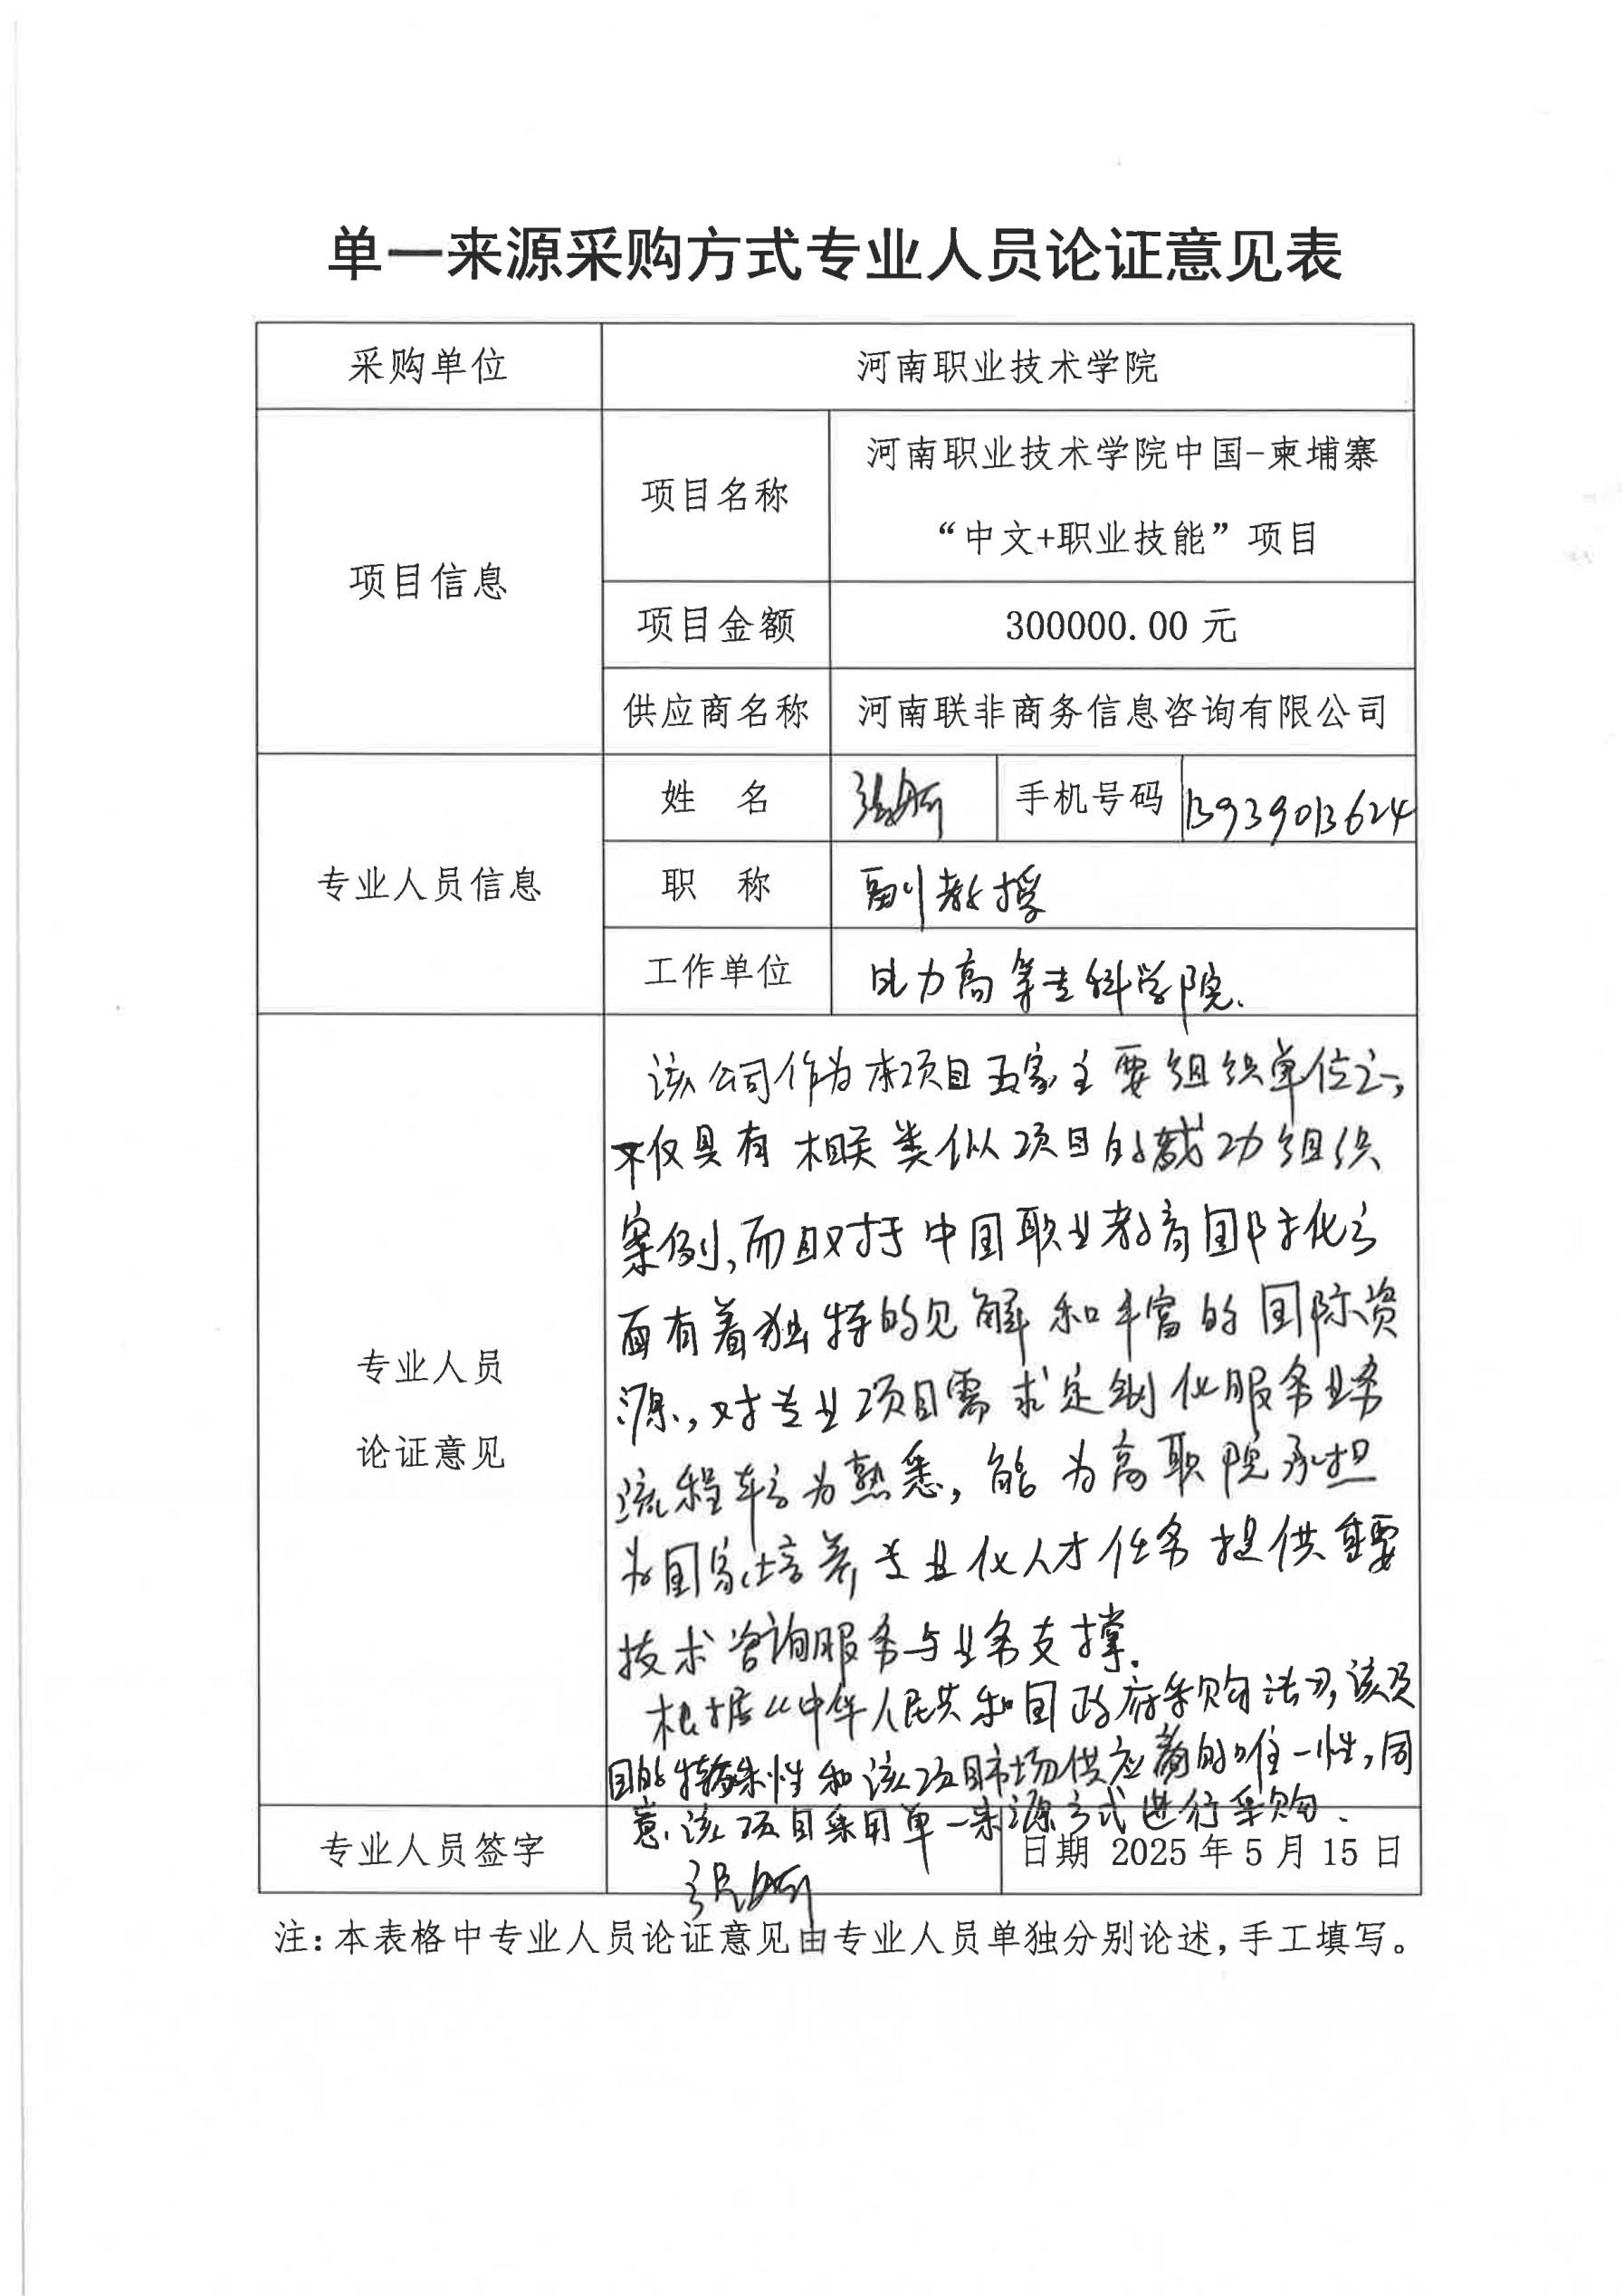 单一来源采购方式专业人员论证意见表
采购单位 河南职业技术学院
项目信息
项目名称 河南职业技术学院中国-柬埔寨
“中文+职业技能”项目
项目金额 300000.00 元
供应商名称 河南联非商务信息咨询有限公司
专业人员信息
姓 名 手机号码 13939013624
职 称 副教授
工作单位 电力高等专科学院.
专业人员
论证意见
该公司作为本项目五家主要组织单位之一,
不仅具有相关类似项目的成功组织
案例,而且对于中国职业教育国际化方
面有着独特的见解和丰富的国际资
源,对专业项目需求定制化服务业务
流程较为熟悉,能为高职院承担
为国家培养专业化人才任务提供重要
技术咨询服务与业务支撑.
根据《中华人民共和国政府采购法》,该项
目的特殊性和该项目市场供应商的唯一性,同
意该项目采用单一来源方式进行采购.
专业人员签字 日期 2025 年 5 月 15 日
注:本表格中专业人员论证意见由专业人员单独分别论述,手工填写。